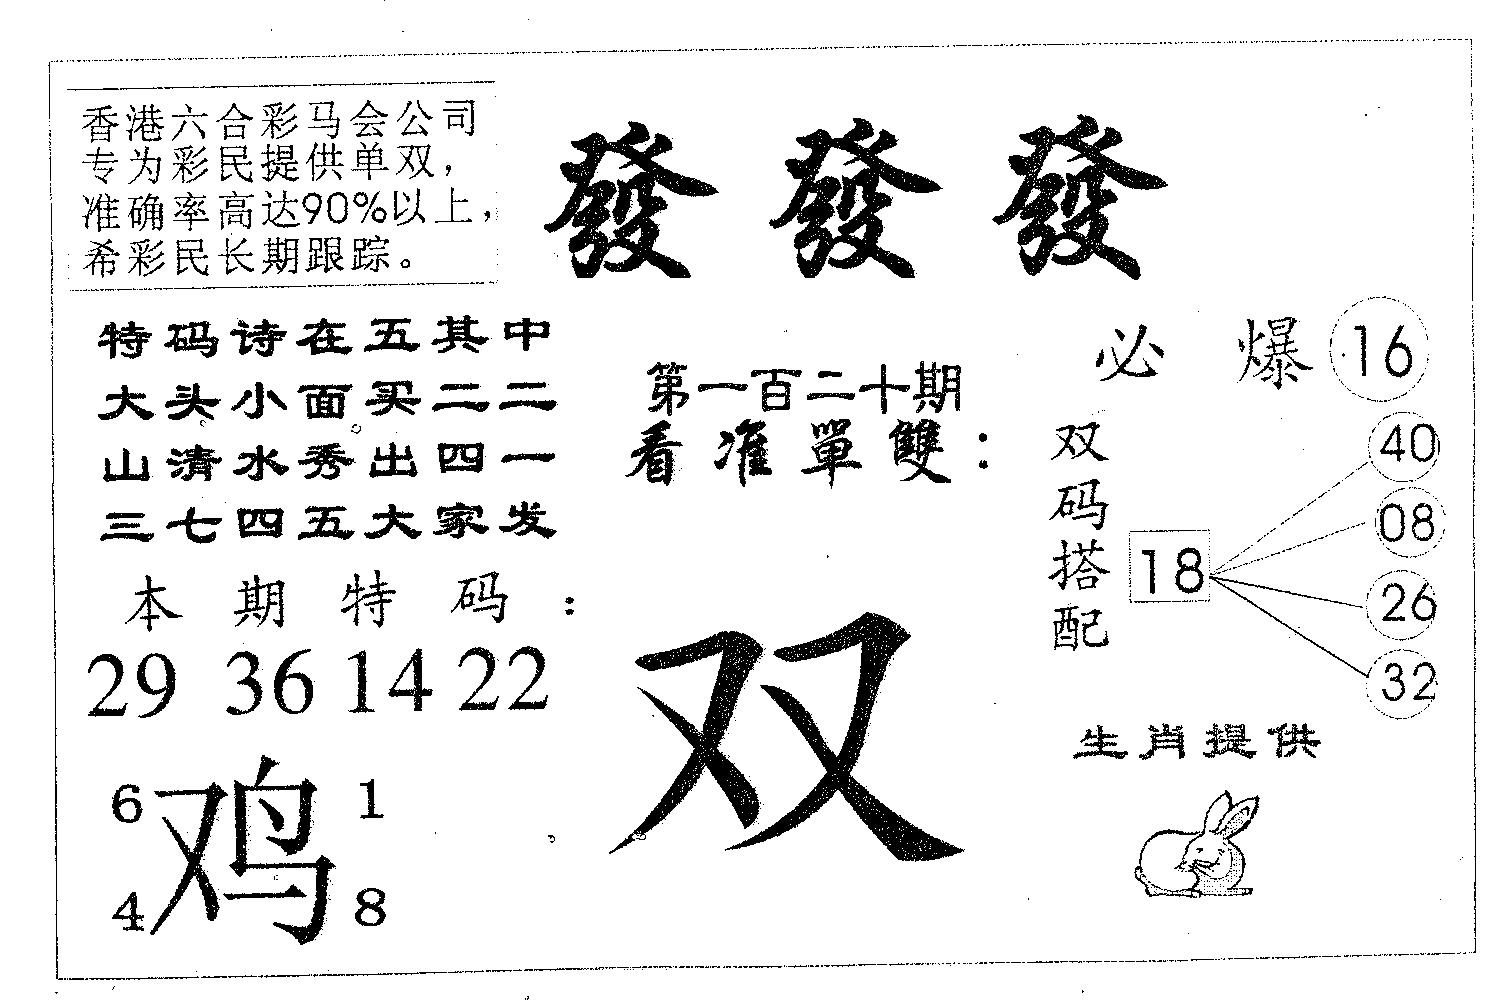 香港六合彩马会公司
专为彩民提供单双，
准确率高达90%以上，
希彩民长期跟踪。
發 發 發
特码诗在五其中
大头小面买二二
山清水秀出四一
三七四五大家发
第一百二十期
看准單雙：
必 爆 16
双码搭配
18
40
08
26
32
本期特码：
29 36 14 22
双
生肖提供
6 1
鸡
4 8